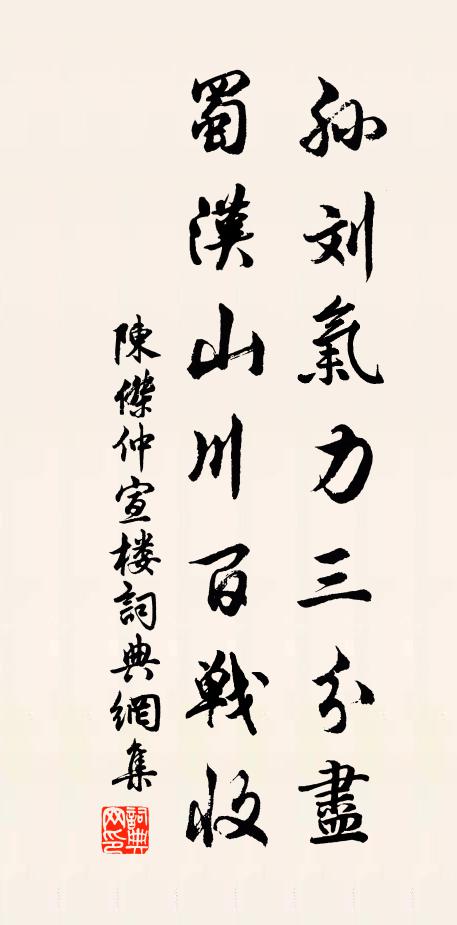 孙刘氣力三分盡
蜀漢山川百戰收
陳傑仲宣楼詞典網集
詞典網印